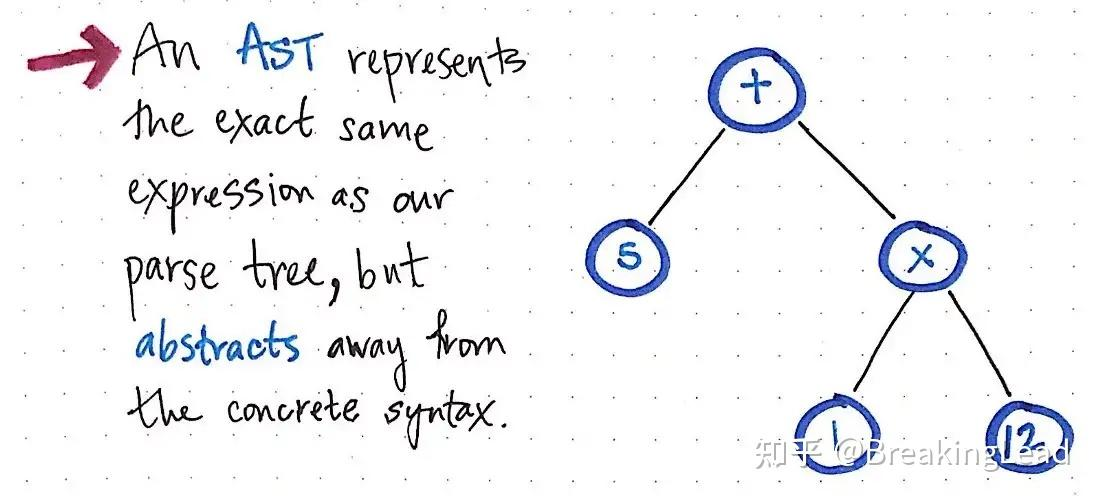 An AST represents
the exact same
expression as our
parse tree, but
abstracts away from
the concrete syntax.
+
5
x
1
12
知乎 @BreakingLead